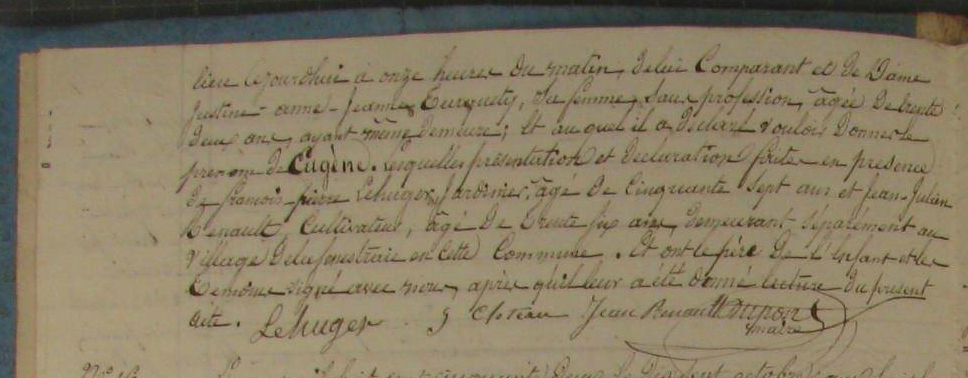 lieu cejourdhui à onze heures du matin, de lui Comparant et de Dame
Justine-anne-Jeanne Turquety, Sa femme, sans profession, âgée de trente
deux ans, ayant même demeure; Et au quel il a déclaré vouloir donner le
prenom de Eugène. Lesquelles présentation et déclaration faites en présence
de françois-pierre Lehuger, Jardinier, âgé de Cinquante Sept ans et Jean-Julien
Renault, Cultivateur, âgé de trente Six ans, demeurant séparément au
village de la en cette Commune. Et ont le père de l'Enfant et les
témoins signé avec nous, après qu'il leur a été donné lecture du présent
acte. Lehuger Jean Renault Dupont
maire
octobre